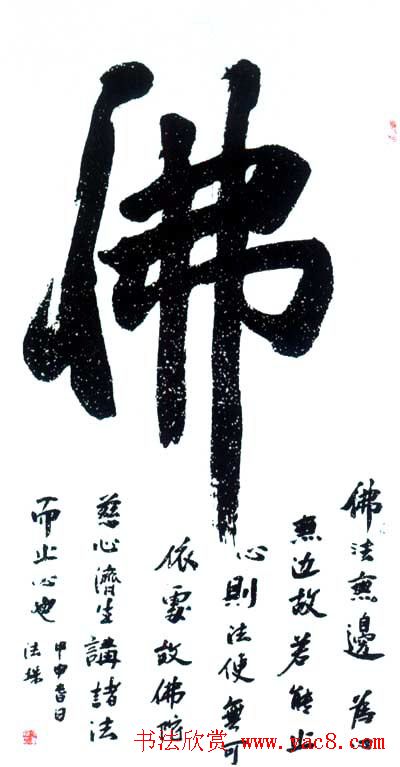 佛
佛法無邊
無边故若能止
心則法使無可
依處故佛陀
慈心濟生講諸法
而止心也
甲申春日
法珠
书法欣赏 www.yac8.com